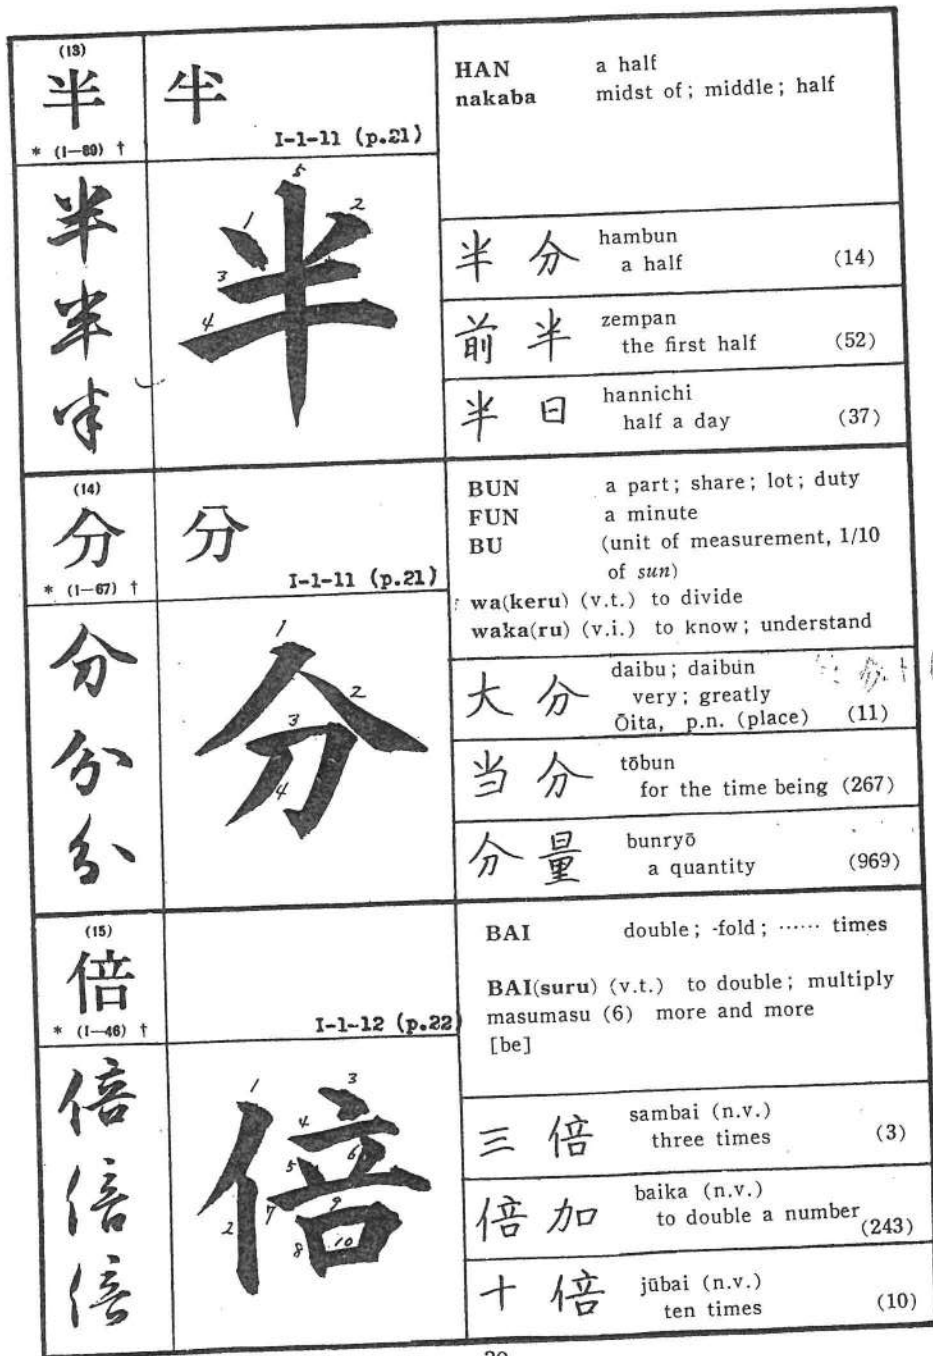 (13)
半
* (I—89) †
半
I-1-11 (p.21)
HAN a half
nakaba midst of; middle; half
半
半
半
半
1 2 3 4 5
半分 hambun
a half (14)
前半 zempan
the first half (52)
半日 hannichi
half a day (37)
(14)
分
* (I—67) †
分
I-1-11 (p.21)
BUN a part; share; lot; duty
FUN a minute
BU (unit of measurement, 1/10
of sun)
wa(keru) (v.t.) to divide
waka(ru) (v.i.) to know; understand
分
分
分
分
1 2 3 4
大分 daibu; daibun
very; greatly
Ōita, p.n. (place) (11)
当分 tōbun
for the time being (267)
分量 bunryō
a quantity (969)
(15)
倍
* (I—46) †
I-1-12 (p.22)
BAI double; -fold; …… times
BAI(suru) (v.t.) to double; multiply
masumasu (6) more and more
[be]
倍
倍
倍
倍
1 2 3 4 5 6 7 8 9 10
三倍 sambai (n.v.)
three times (3)
倍加 baika (n.v.)
to double a number (243)
十倍 jūbai (n.v.)
ten times (10)